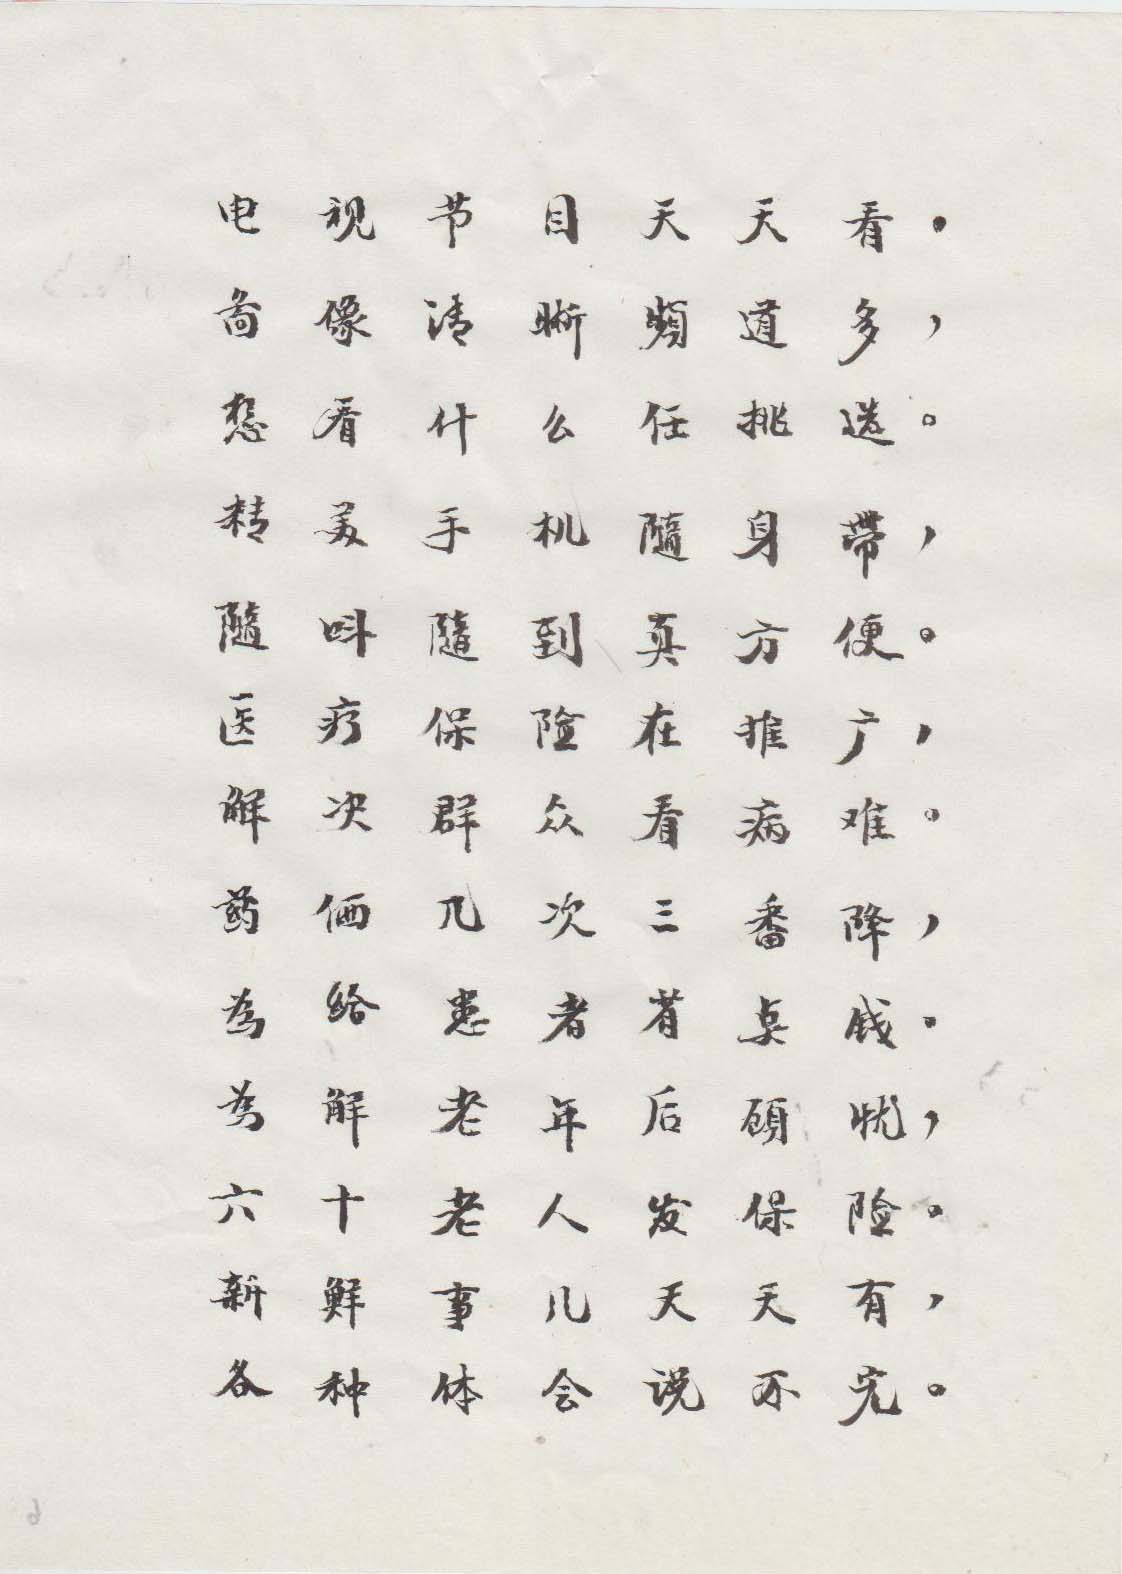 电视节目天天看。
啚像清晰频道多，
想看什么任挑选。
精美手机隨身帶，
隨叫隨到真方便。
医疗保险在推广，
解决群众看病难。
药価几次三番降，
為给患者省点钱。
為解老年后顾忧，
六十老人发保险。
新鲜事儿天天有，
各种体会说不完。